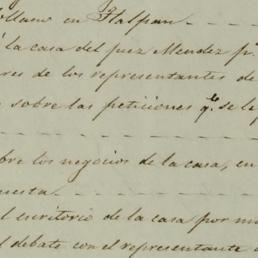 en Tlalpan.
la casa del juez Mendez p.ª
res de los representantes de
sobre las peticiones q.e se le p
bre los negocios de la casa, en
uesta.
l escritorio de la casa por m
l debate con el representante